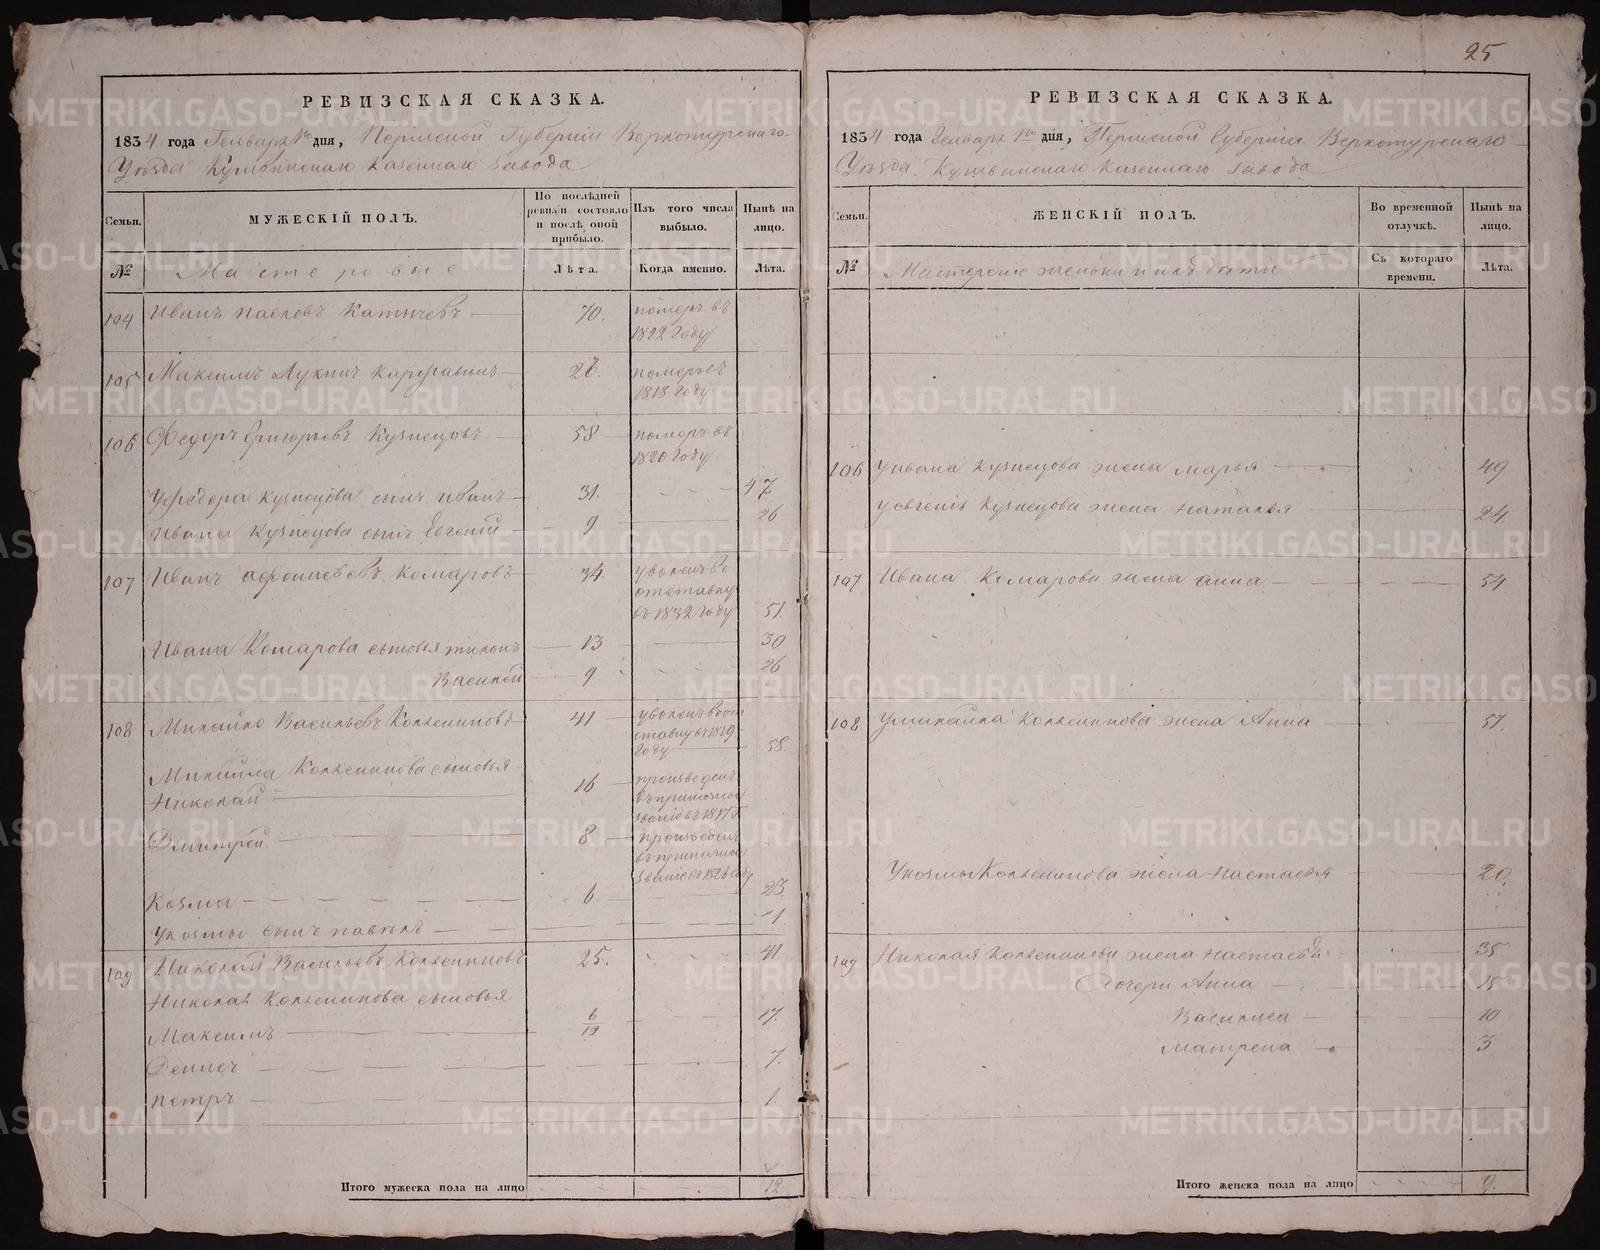 25
РЕВИЗСКАЯ СКАЗКА.
1834 года Генваря 1го дня, Пермской Губернии Верхотурскаго
Уѣзда Кушвинскаго Казеннаго Завода
Семьи.
МУЖЕСКІЙ ПОЛЪ.
По послѣдней ревизіи состояло и послѣ оной прибыло.
Изъ того числа выбыло.
Нынѣ на лицо.
№
Мастеровые
Лѣта.
Когда именно.
Лѣта.
104 Иванъ Павловъ Катычевъ 70. померъ въ
1822 Году
105 Максимъ Лукинъ 26. померъ въ
1818 Году
106 Федоръ Григорьевъ Кузнецовъ 58 померъ въ
1820 Году
У Федора Кузнецова сынъ Иванъ 31. 47
Ивана Кузнецова сынъ Евгений 9 26
107 Иванъ Афонасьевъ Комаровъ 34. уволенъ в
отставку
въ 1832 Году 51.
Ивана Комарова сыновья 13 30
Василей 9 26
108 Михайло Васильевъ Колесниковъ 41 уволенъ в от
ставку въ 1829
Году 58.
Михайла Колесникова сыновья
Николай 16 произведенъ
Дмитрей 8 произведенъ
Козма 6 23
У Козмы сынъ Павелъ 1.
109 Николай Васильевъ Колесниковъ 25. 41.
Николая Колесникова сыновья
Максимъ 6/12 17.
Денисъ 7.
Петръ 1.
Итого мужеска пола на лицо 12
РЕВИЗСКАЯ СКАЗКА.
1834 года Генваря 1го дня, Пермской Губернии Верхотурскаго
Уѣзда Кушвинскаго Казеннаго Завода
Семьи.
ЖЕНСКІЙ ПОЛЪ.
Во временной отлучкѣ.
Нынѣ на лицо.
№
Мастерские женки и ихъ дѣти
Съ котораго времени.
Лѣта.
106 У Ивана Кузнецова жена Марья 49
У Евгенія Кузнецова жена Наталья 24.
107 Ивана Комарова жена Анна 54
108 У Михайла Колесникова жена Анна 57.
У Козмы Колесникова жена Настасья 20.
109 Николая Колесникова жена Настасья 35
Дочери Анна 15
Василиса 10
Матрена 3
Итого женска пола на лицо 9.
METRIKI.GASO-URAL.RU